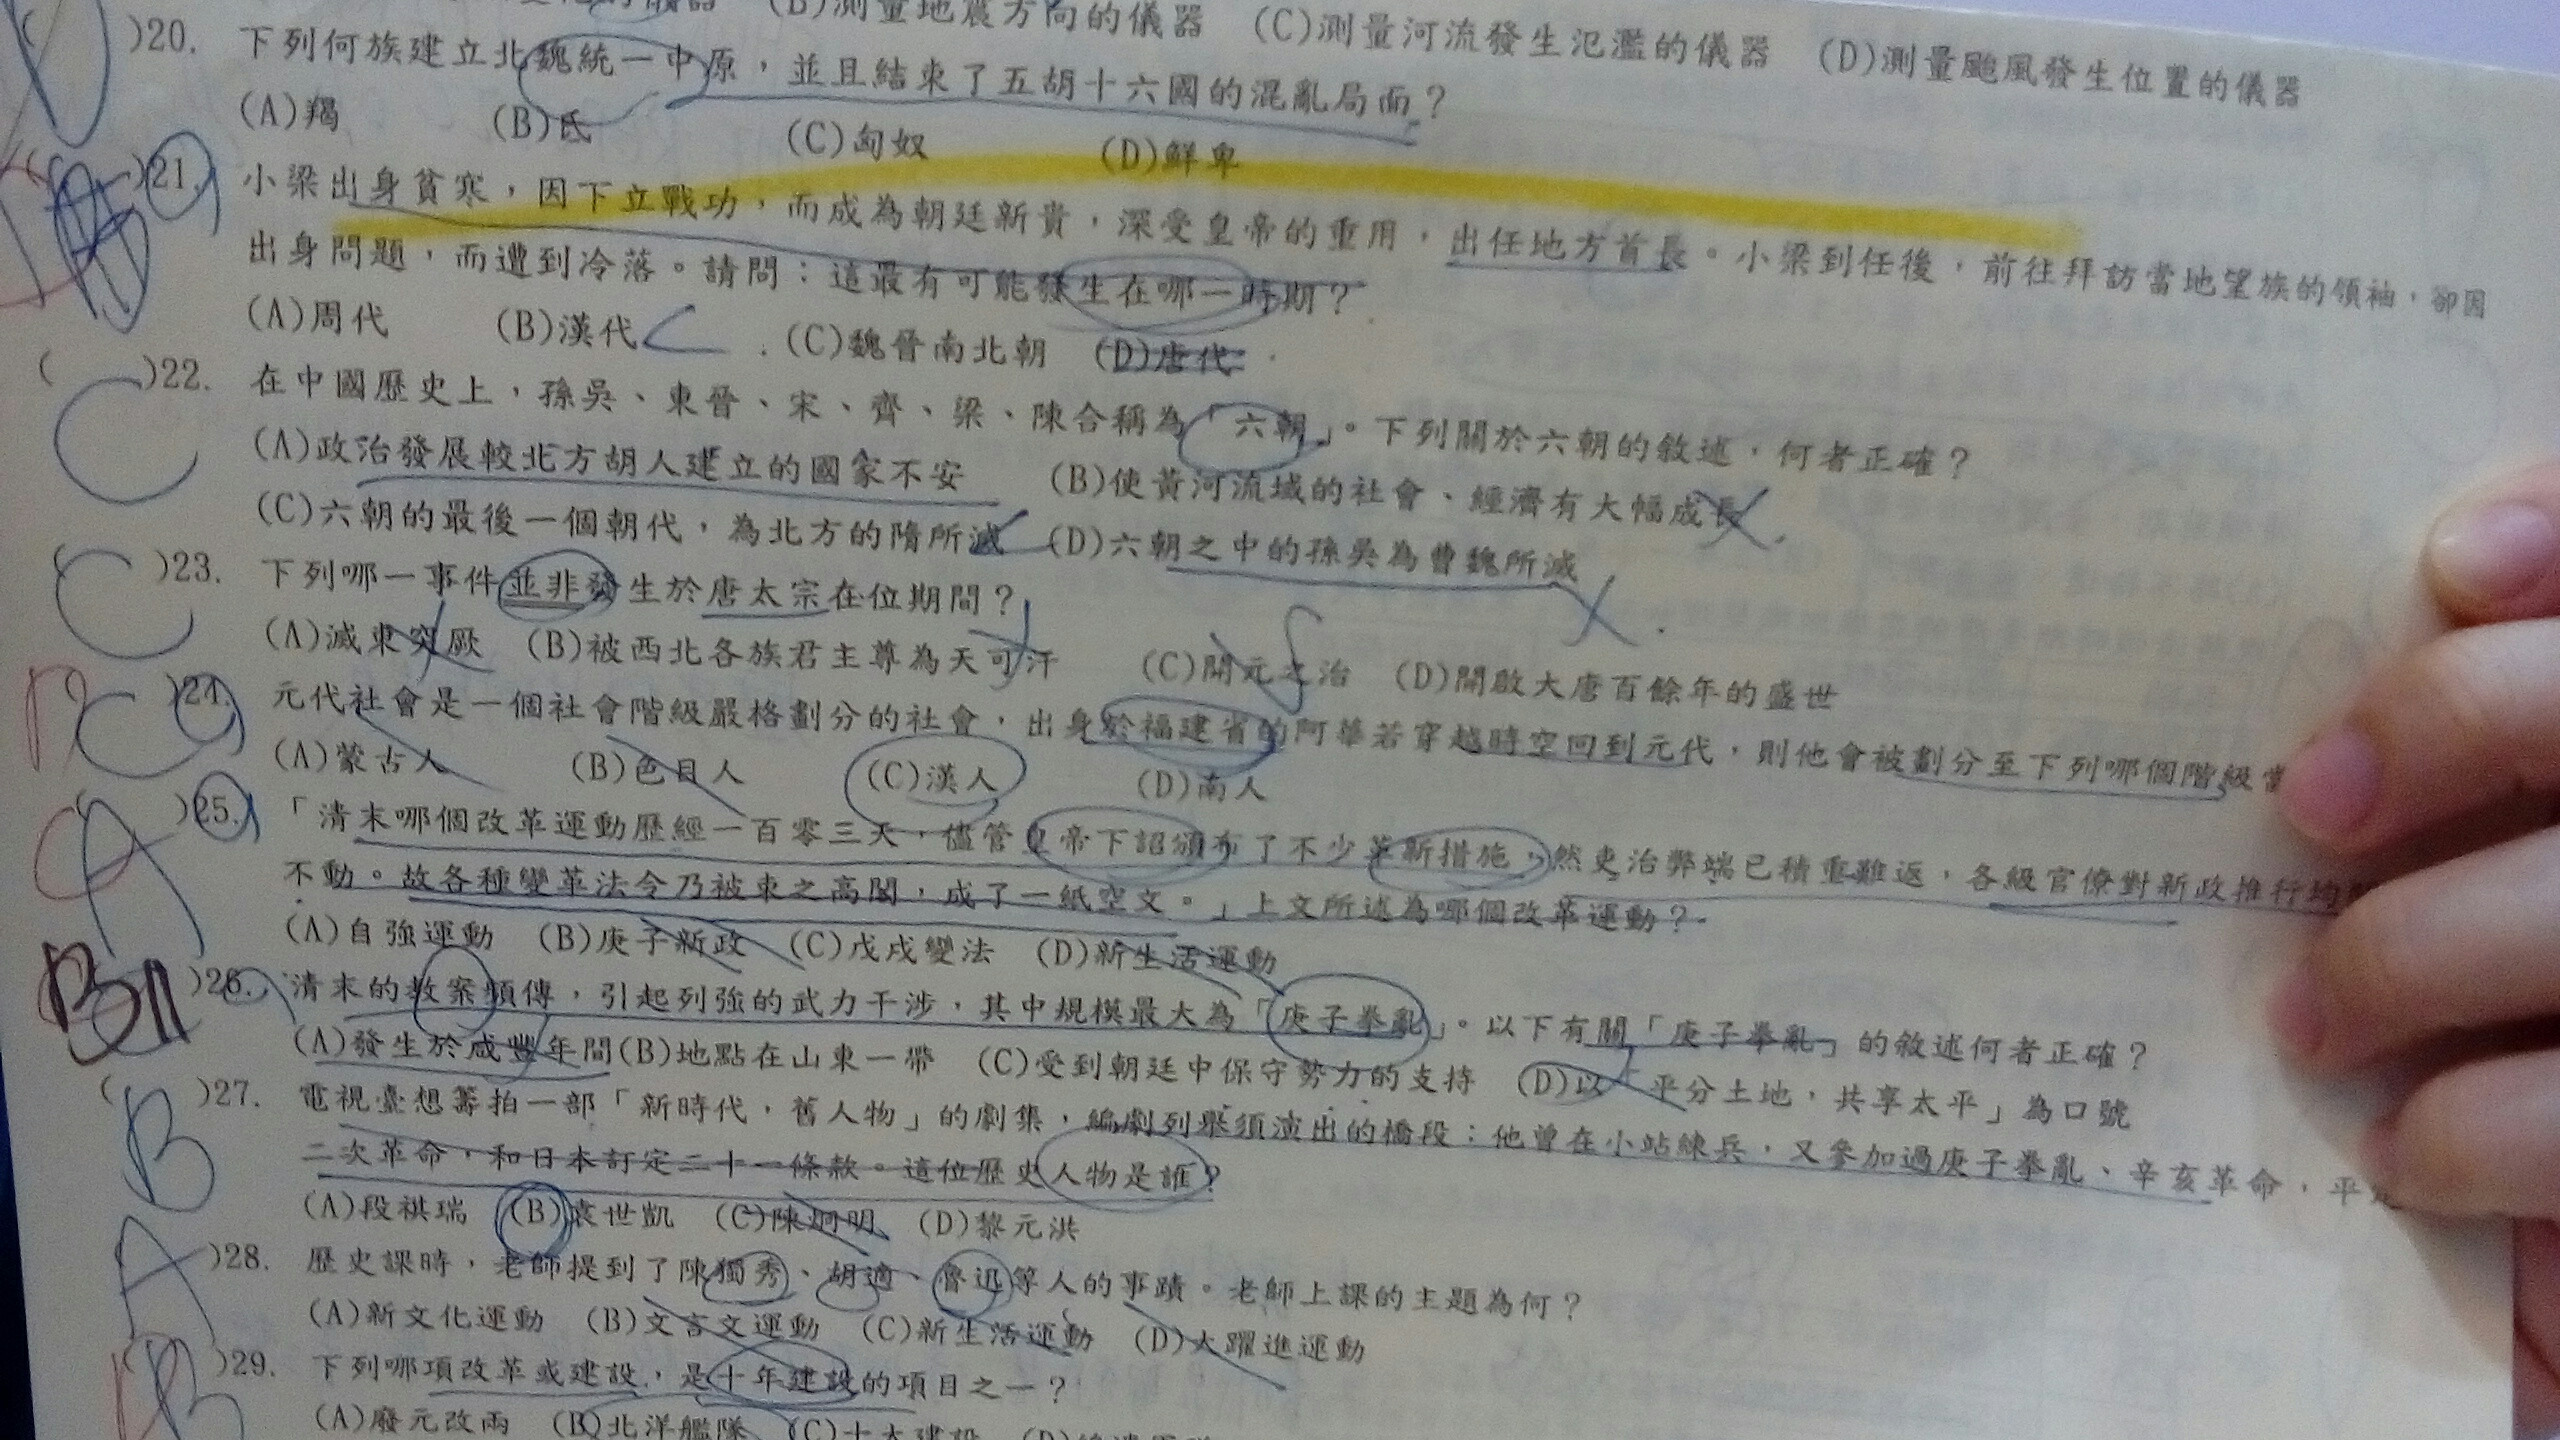 (B)測量地震方向的儀器 (C)測量河流發生氾濫的儀器 (D)測量颱風發生位置的儀器
)20. 下列何族建立北魏統一中原，並且結束了五胡十六國的混亂局面？
(A)羯 (B)氐 (C)匈奴 (D)鮮卑
)21. 小梁出身貧寒，因下立戰功，而成為朝廷新貴，深受皇帝的重用，出任地方首長。小梁到任後，前往拜訪當地望族的領袖，卻因
出身問題，而遭到冷落。請問：這最有可能發生在哪一時期？
(A)周代 (B)漢代 (C)魏晉南北朝 (D)唐代
( C )22. 在中國歷史上，孫吳、東晉、宋、齊、梁、陳合稱為「六朝」。下列關於六朝的敘述，何者正確？
(A)政治發展較北方胡人建立的國家不安 (B)使黃河流域的社會、經濟有大幅成長
(C)六朝的最後一個朝代，為北方的隋所滅 (D)六朝之中的孫吳為曹魏所滅
( C )23. 下列哪一事件並非發生於唐太宗在位期間？
(A)滅東突厥 (B)被西北各族君主尊為天可汗 (C)開元之治 (D)開啟大唐百餘年的盛世
C )24. 元代社會是一個社會階級嚴格劃分的社會，出身於福建省的阿華若穿越時空回到元代，則他會被劃分至下列哪個階級當
(A)蒙古人 (B)色目人 (C)漢人 (D)南人
A )25. 「清末哪個改革運動歷經一百零三天，儘管皇帝下詔頒布了不少革新措施，然吏治弊端已積重難返，各級官僚對新政推行均
不動。故各種變革法令乃被束之高閣，成了一紙空文。」上文所述為哪個改革運動？
(A)自強運動 (B)庚子新政 (C)戊戌變法 (D)新生活運動
B )26. 清末的教案頻傳，引起列強的武力干涉，其中規模最大為「庚子拳亂」。以下有關「庚子拳亂」的敘述何者正確？
(A)發生於咸豐年間(B)地點在山東一帶 (C)受到朝廷中保守勢力的支持 (D)以「平分土地，共享太平」為口號
( B )27. 電視臺想籌拍一部「新時代，舊人物」的劇集，編劇列舉須演出的橋段：他曾在小站練兵，又參加過庚子拳亂、辛亥革命，平
二次革命，和日本訂定二十一條款。這位歷史人物是誰？
(A)段祺瑞 (B)袁世凱 (C)陳炯明 (D)黎元洪
A )28. 歷史課時，老師提到了陳獨秀、胡適、魯迅等人的事蹟。老師上課的主題為何？
(A)新文化運動 (B)文言文運動 (C)新生活運動 (D)大躍進運動
B )29. 下列哪項改革或建設，是十年建設的項目之一？
(A)廢元改兩 (B)北洋艦隊 (C)十大建設